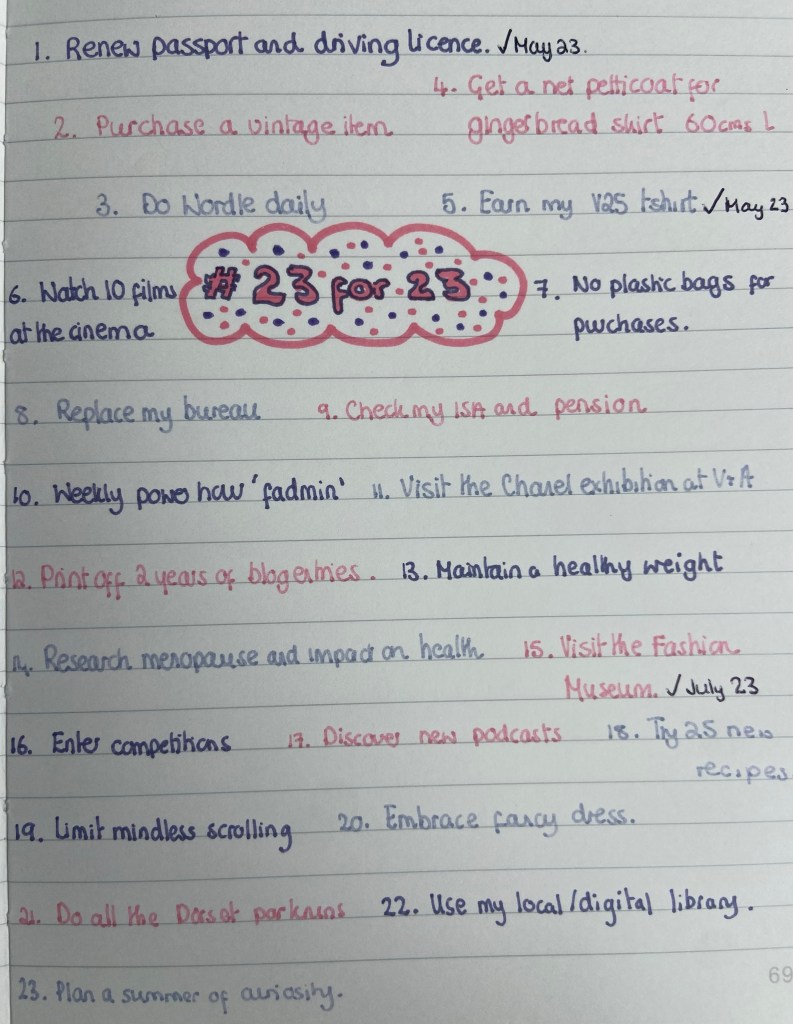 1. Renew passport and driving licence. ✓ May 23.
2. Purchase a vintage item
4. Get a net petticoat for
gingerbread skirt 60cms L
3. Do Wordle daily
5. Earn my V25 t-shirt ✓ May 23
6. Watch 10 films
at the cinema
# 23 for 23
7. No plastic bags for
purchases.
8. Replace my bureau
9. Check my ISA and pension
10. Weekly power hour 'fadmin'
11. Visit the Chanel exhibition at V+A
12. Print off 2 years of blog entries.
13. Maintain a healthy weight
14. Research menopause and impact on health
15. Visit the Fashion
Museum. ✓ July 23
16. Enter competitions
17. Discover new podcasts
18. Try 25 new
recipes
19. Limit mindless scrolling
20. Embrace fancy dress.
21. Do all the Dorset parkruns
22. Use my local/digital library.
23. Plan a summer of curiosity.
69